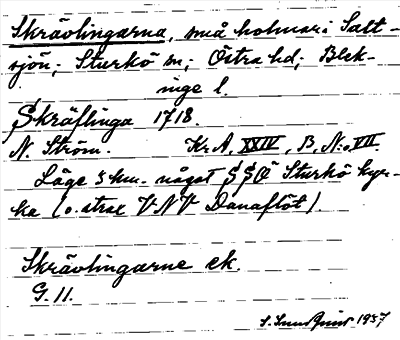 Skrävlingarna, små holmar i Salt-
sjön; Sturkö sn; Östra hd; Blek-
inge l.
Skräflinga 1718.
N. Ström. Kr. A, XXIV, B, N:o VII.
Läge 5 km. något SSÖ Sturkö kyr-
ka (o. strax VNV Danaflöt).
Skrävlingarne ek.
G. 11.
S. 1937